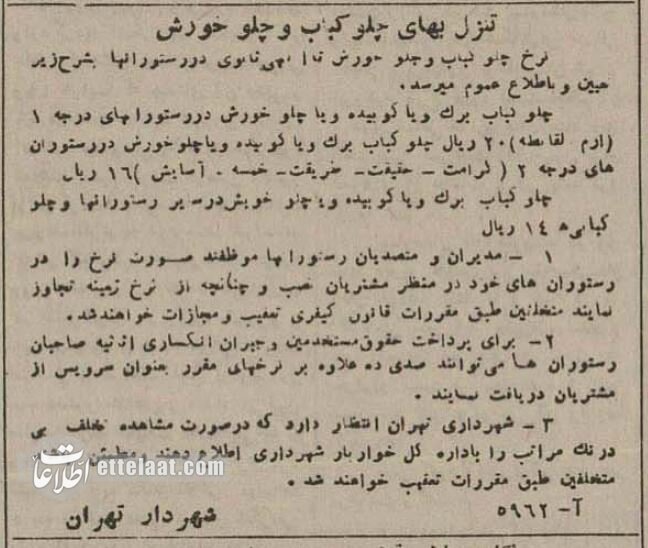 تنزل بهای چلو کباب و چلو خورش
نرخ چلو کباب و چلو خورش تا آگهی ثانوی در رستورانها بشرح زیر
تعیین و باطلاع عموم میرسد.
چلو کباب برك و یا کوبیده و یا چلو خورش در رستورانهای درجه ۱
(ارم لقانطه) ۲۰ ریال چلو کباب برك و یا کوبیده و یا چلو خورش در رستوران
های درجه ۲ (کرامت - حقیقت - طریقت - خمسه - آسایش) ۱۶ ریال
چلو کباب برك و یا کوبیده و یا چلو خورش در سایر رستورانها و چلو
کبابی‌ها ۱۴ ریال
۱ - مدیران و متصدیان رستورانها موظفند صورت نرخ را در
رستوران های خود در منظر مشتریان نصب و چنانچه از نرخ زمینه تجاوز
نمایند متخلفین طبق مقررات قانون کیفری تعقیب و مجازات خواهند شد.
۲- برای پرداخت حقوق مستخدمین و جبران انکساری اثاثیه صاحبان
رستوران ها می‌توانند صدی ده علاوه بر نرخهای مقرر بعنوان سرویس از
مشتریان دریافت نمایند.
۳ - شهرداری تهران انتظار دارد که در صورت مشاهده تخلف بی
درنك مراتب را باداره کل خواربار شهرداری اطلاع دهند و مطمئن
متخلفین طبق مقررات تعقیب خواهند شد.
آ- ۵۹۶۲
شهردار تهران
اطلاعات ettelaat.com